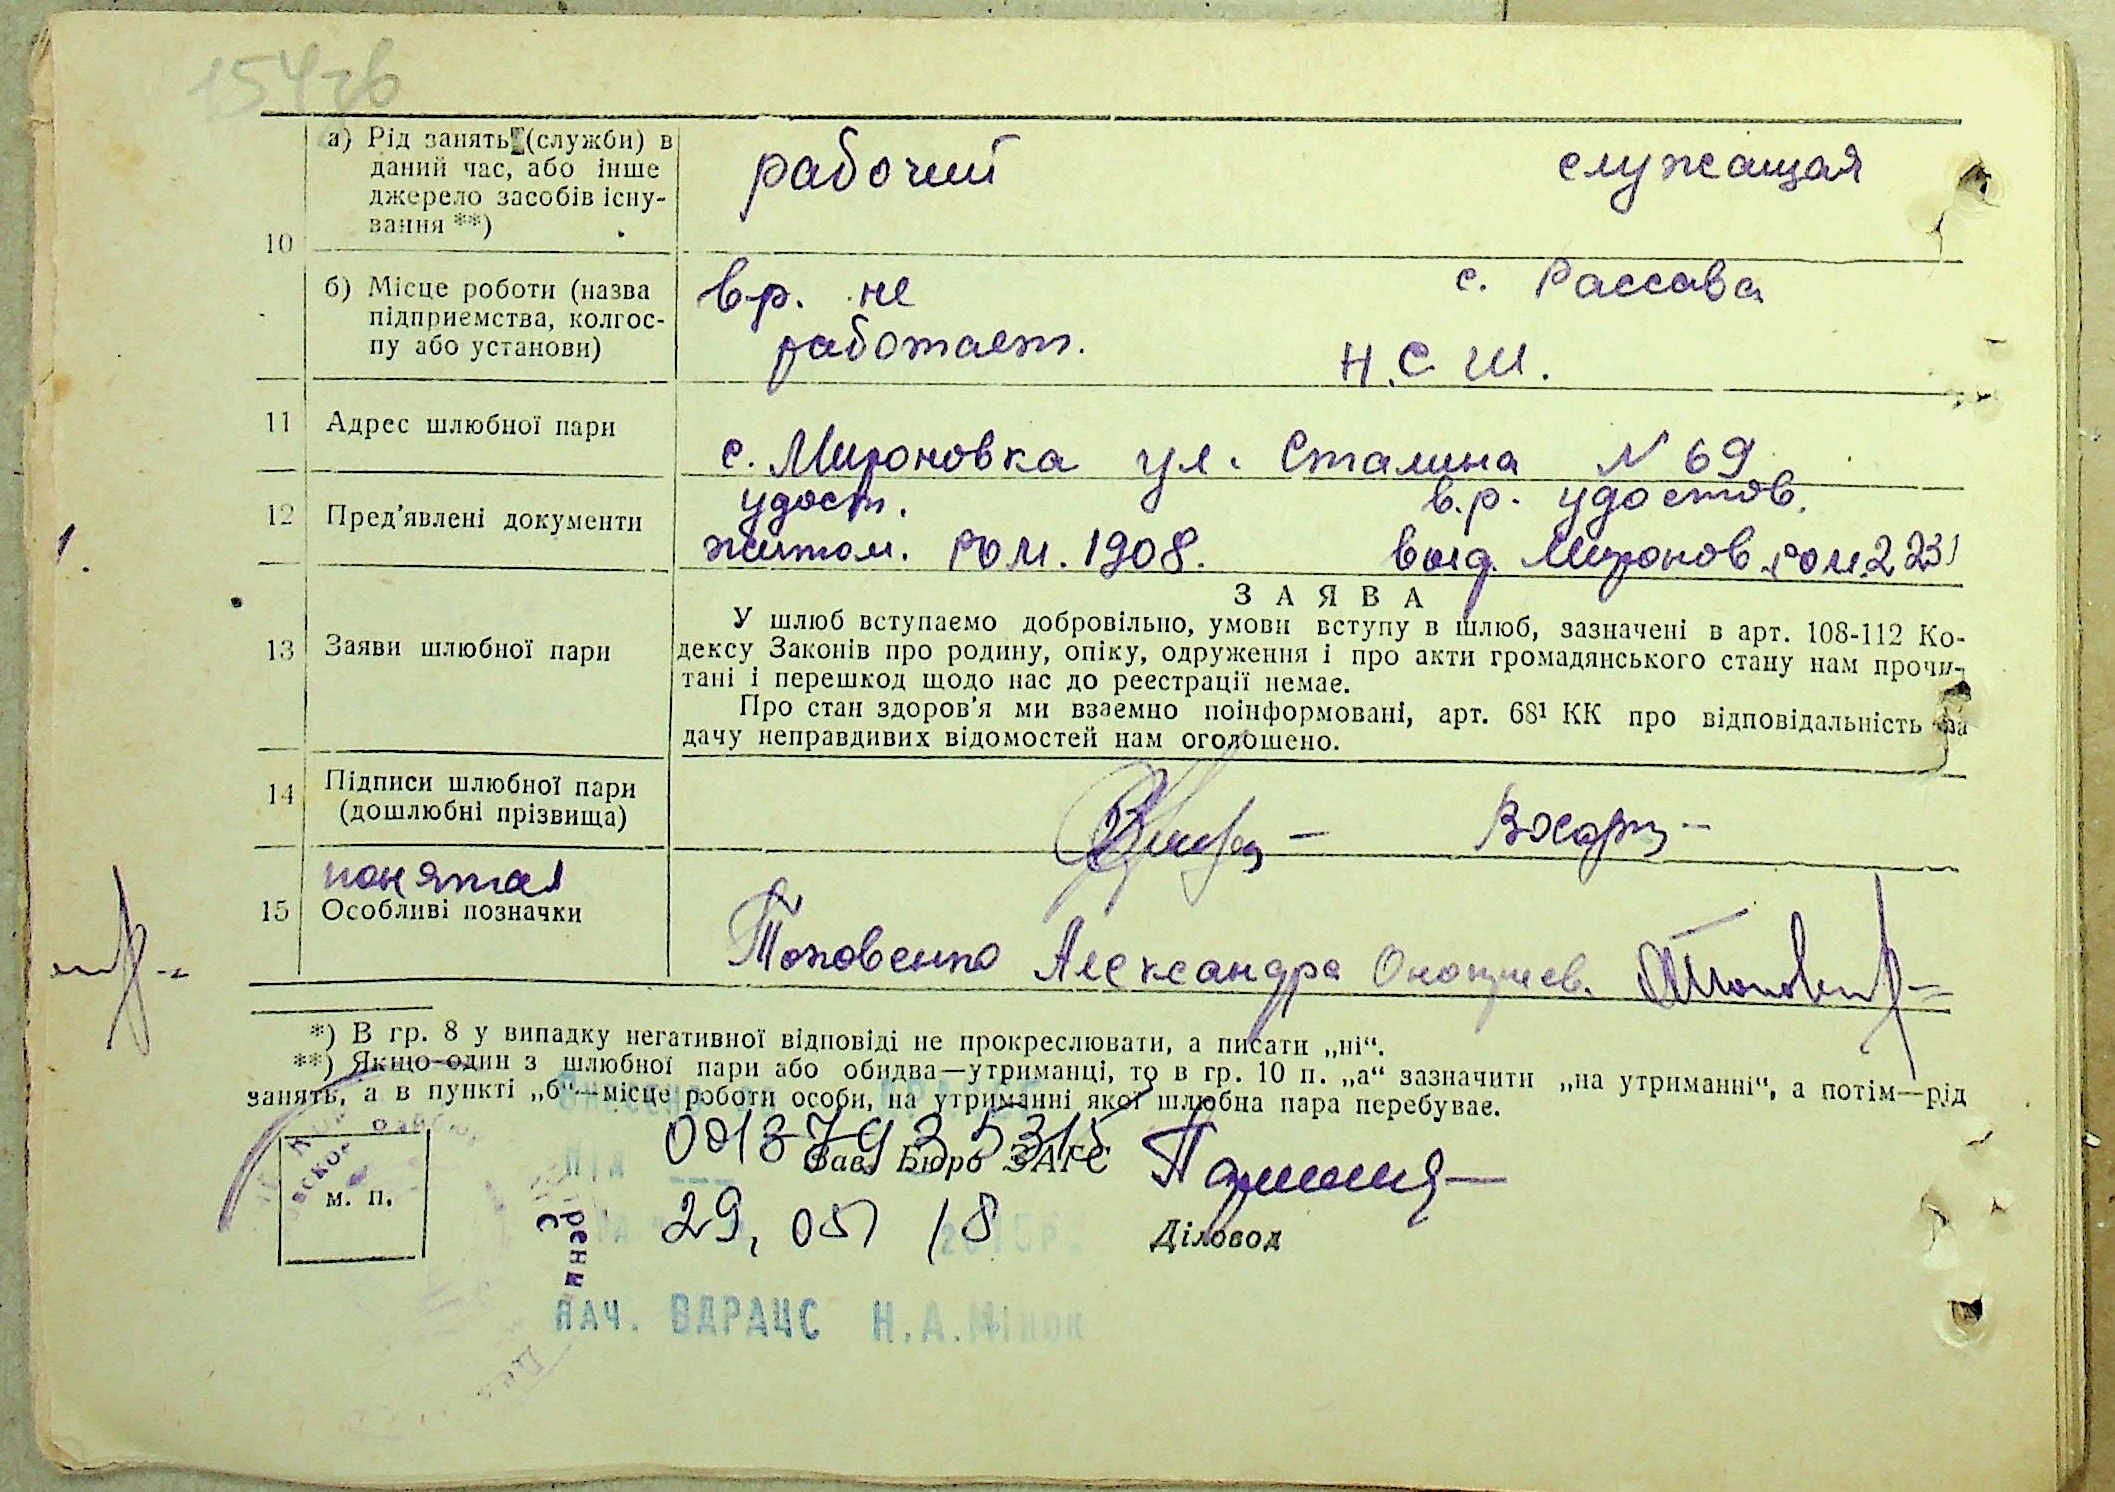 154 зв
а) Рід занять (служби) в даний час, або інше джерело засобів існу-
вання **)
рабочий служащая
10
б) Місце роботи (назва підприємства, колгос-
пу або установи)
вр. не работает.
с. Рассава
Н.С.Ш.
11 Адрес шлюбної пари
с. Мироновка ул. Сталина N 69
12 Пред'явлені документи
удост.
житом. РОМ. 1908.
в.р. удостов.
выд. Миронов. РОМ.
13 Заяви шлюбної пари
ЗАЯВА
У шлюб вступаємо добровільно, умови вступу в шлюб, зазначені в арт. 108-112 Ко-
дексу Законів про родину, опіку, одруження і про акти громадянського стану нам прочи-
тані і перешкод щодо нас до реєстрації немає.
Про стан здоров'я ми взаємно поінформовані, арт. 68¹ КК про відповідальність за
дачу неправдивих відомостей нам оголошено.
14 Підписи шлюбної пари
(дошлюбні прізвища)
понятая
15 Особливі позначки
Александра
*) В гр. 8 у випадку негативної відповіді не прокреслювати, а писати „ні“.
**) Якщо один з шлюбної пари або обидва—утриманці, то в гр. 10 п. „а“ зазначити „на утриманні“, а потім—рід
занять, а в пункті „б“—місце роботи особи, на утриманні якої шлюбна пара перебуває.
м. п.
00137935315
Зав. Бюро ЗАГС
29. 05 18
Діловод
НАЧ. ВДРАЦС Н.А.